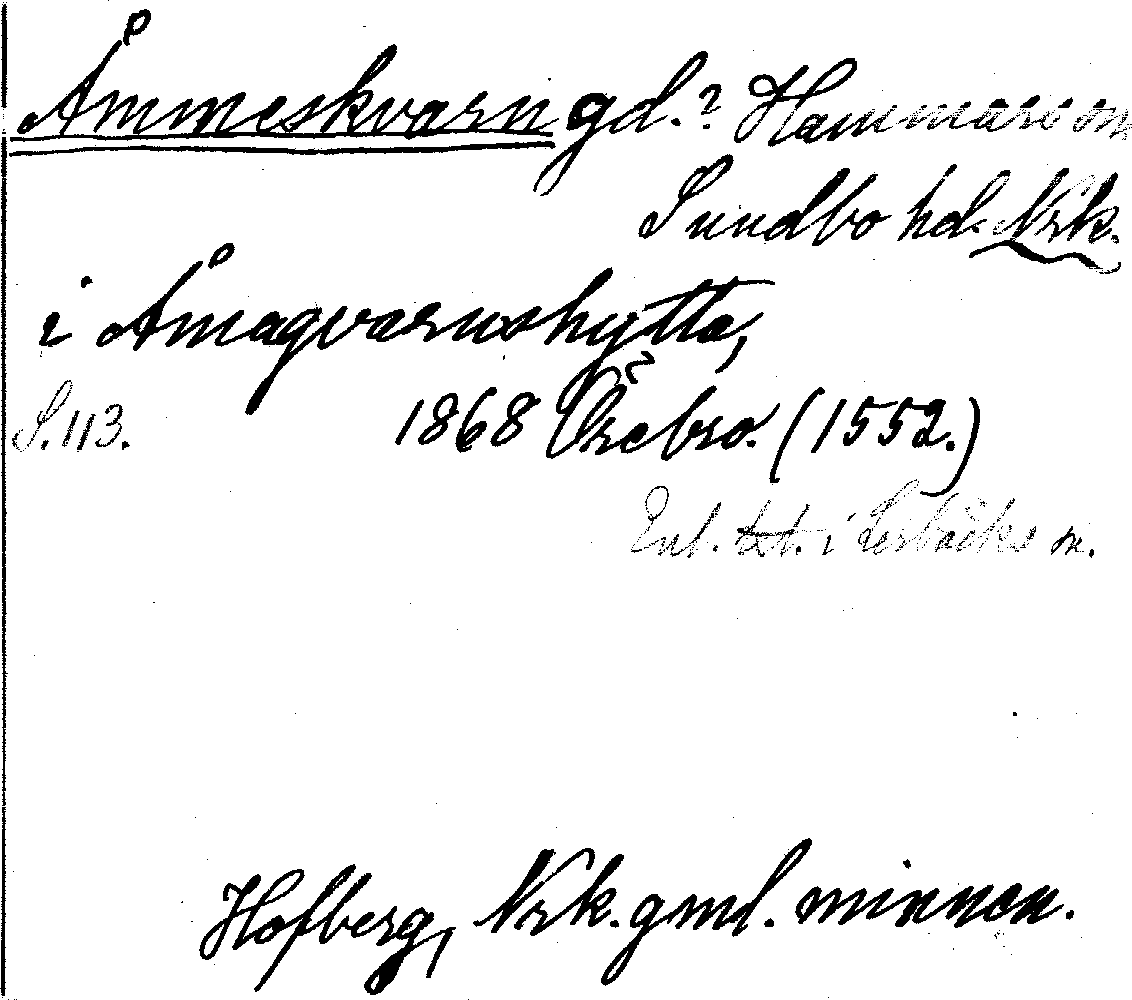 Åmmeskvarn gd.? Hammars sn
Sundbo hd. Nrk.
i Åmaqvarnshytta,
S. 113. 1868 Örebro. (1552.)
Enl. txt. i Lerbäcks sn.
Hofberg, Nrk. gml. minnen.